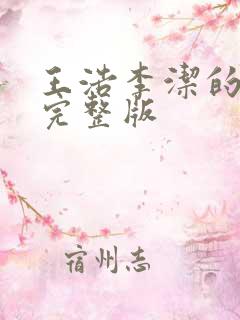 王浩李洁的
完整版
宿州志